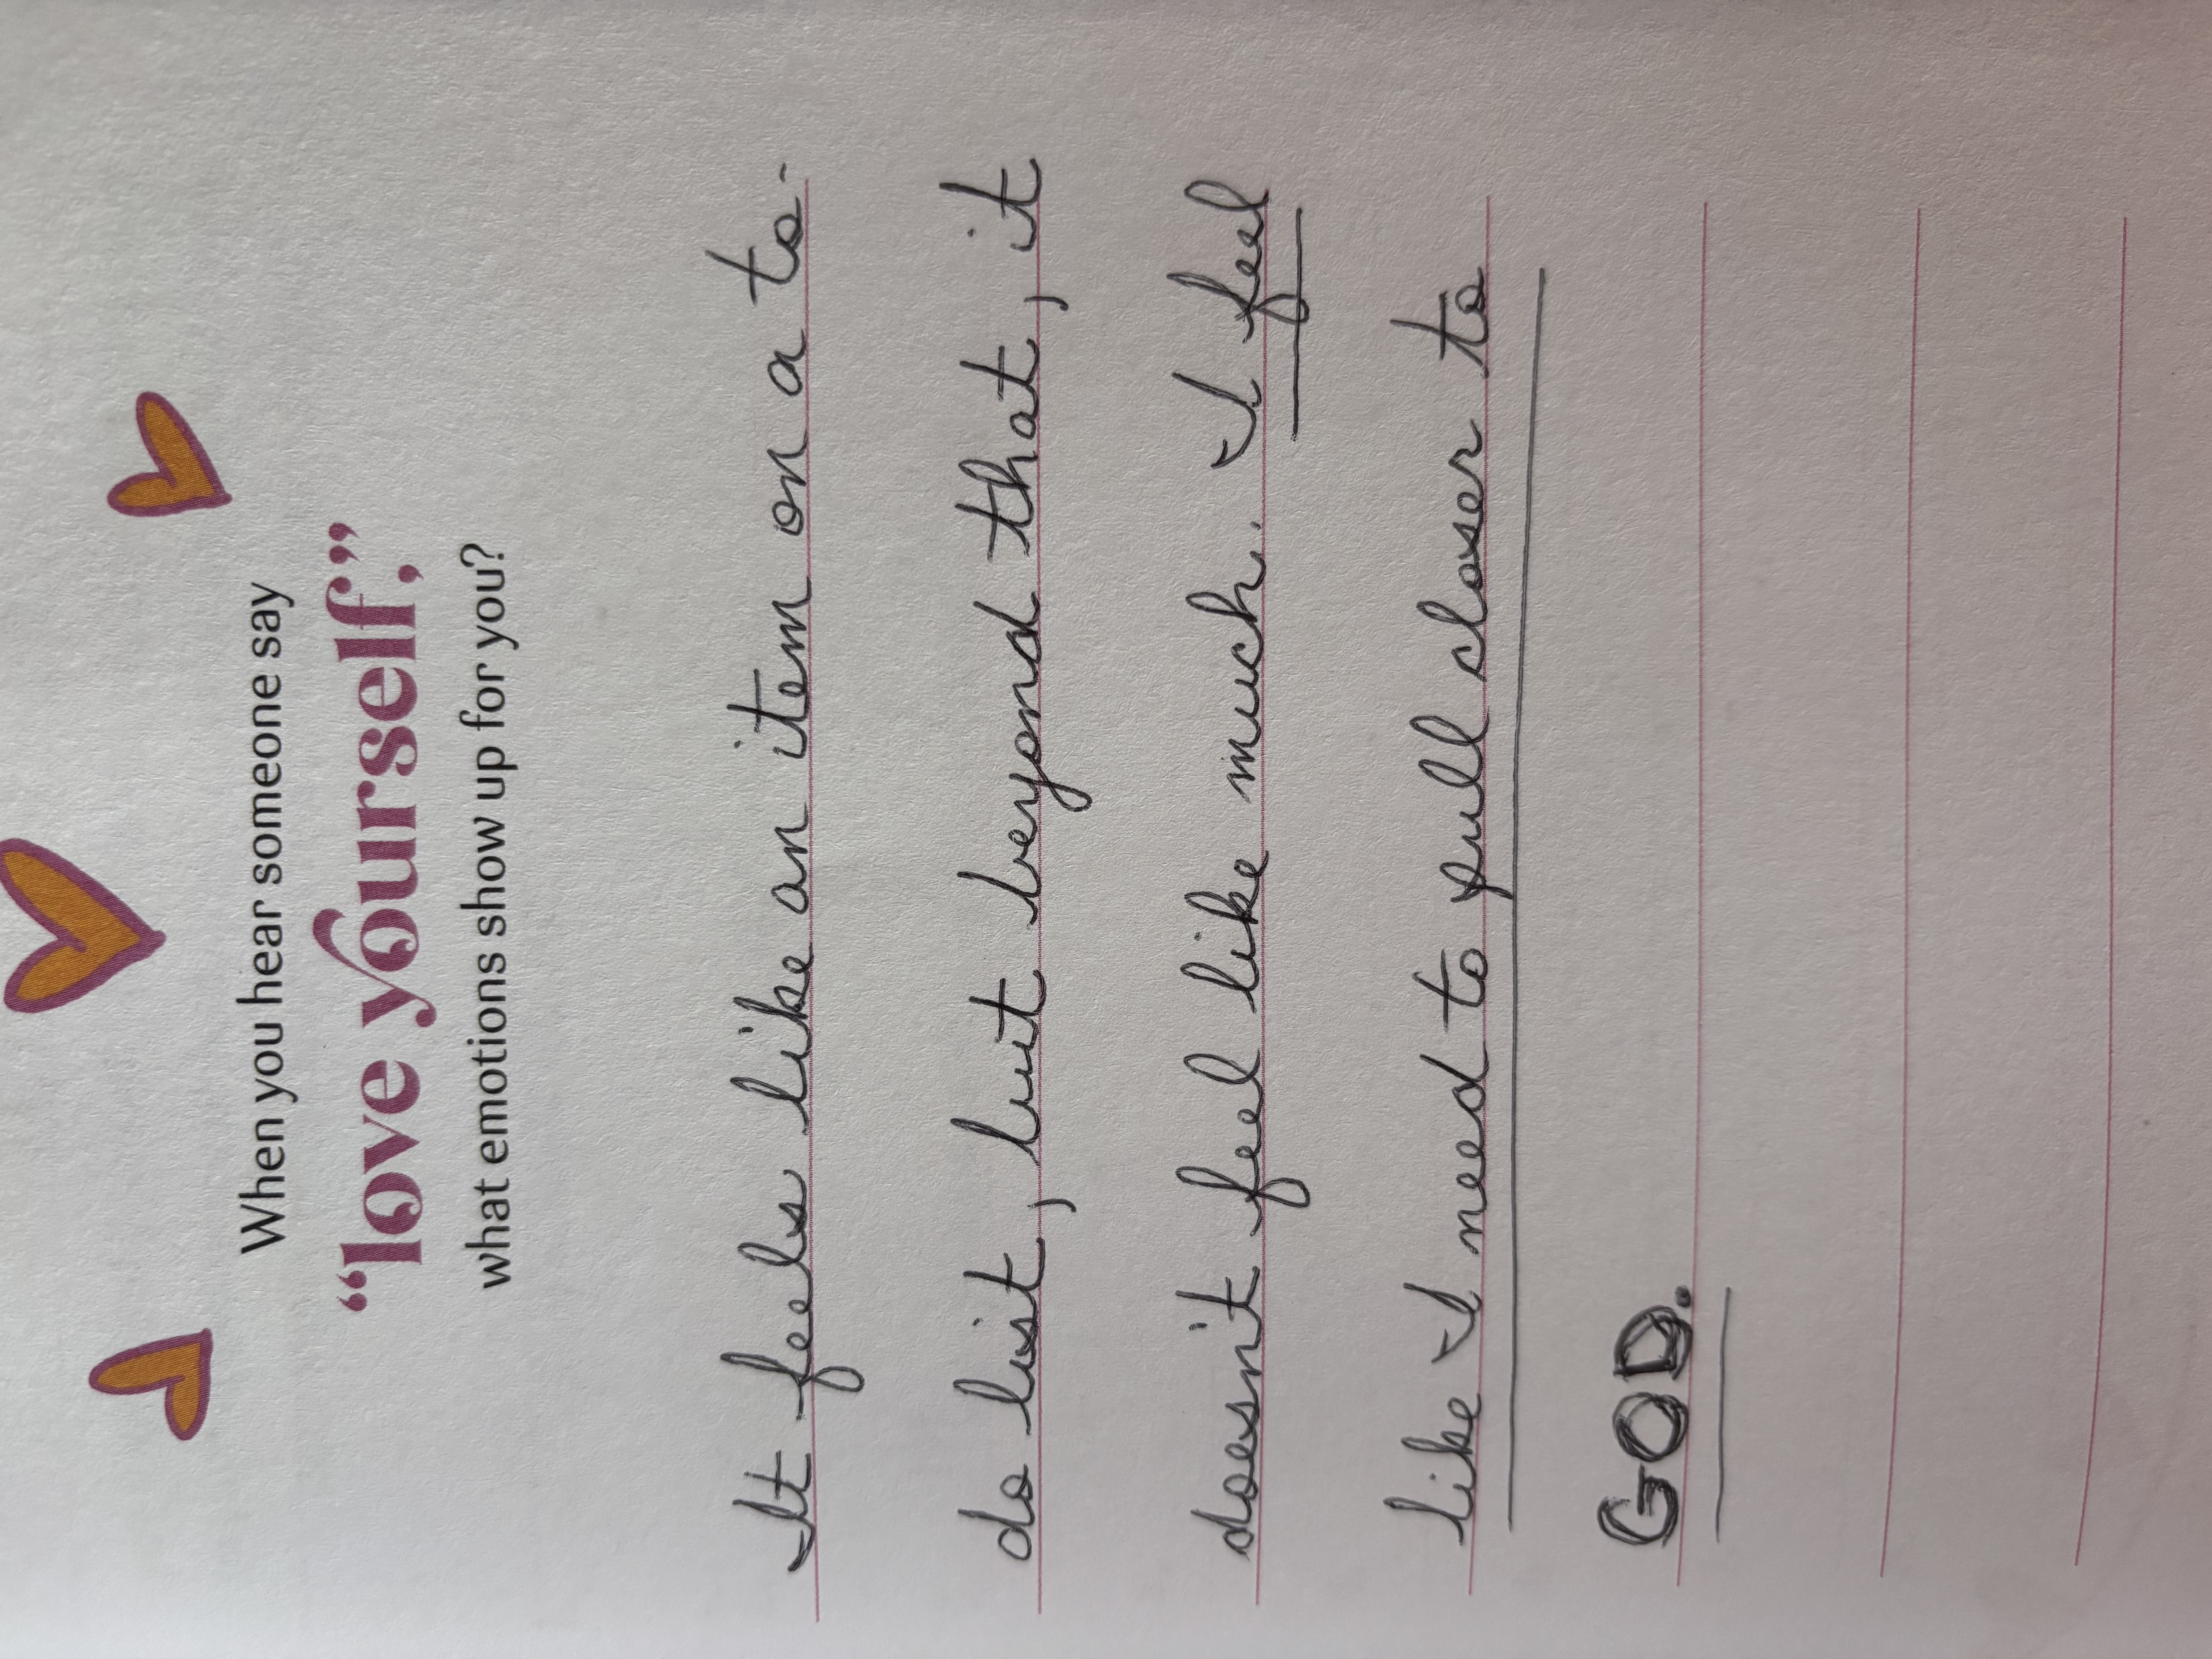 When you hear someone say
“love yourself,”
what emotions show up for you?
It feels like an item on a to-
do list, but beyond that, it
doesn't feel like much. I feel
like I need to pull closer to
GOD.